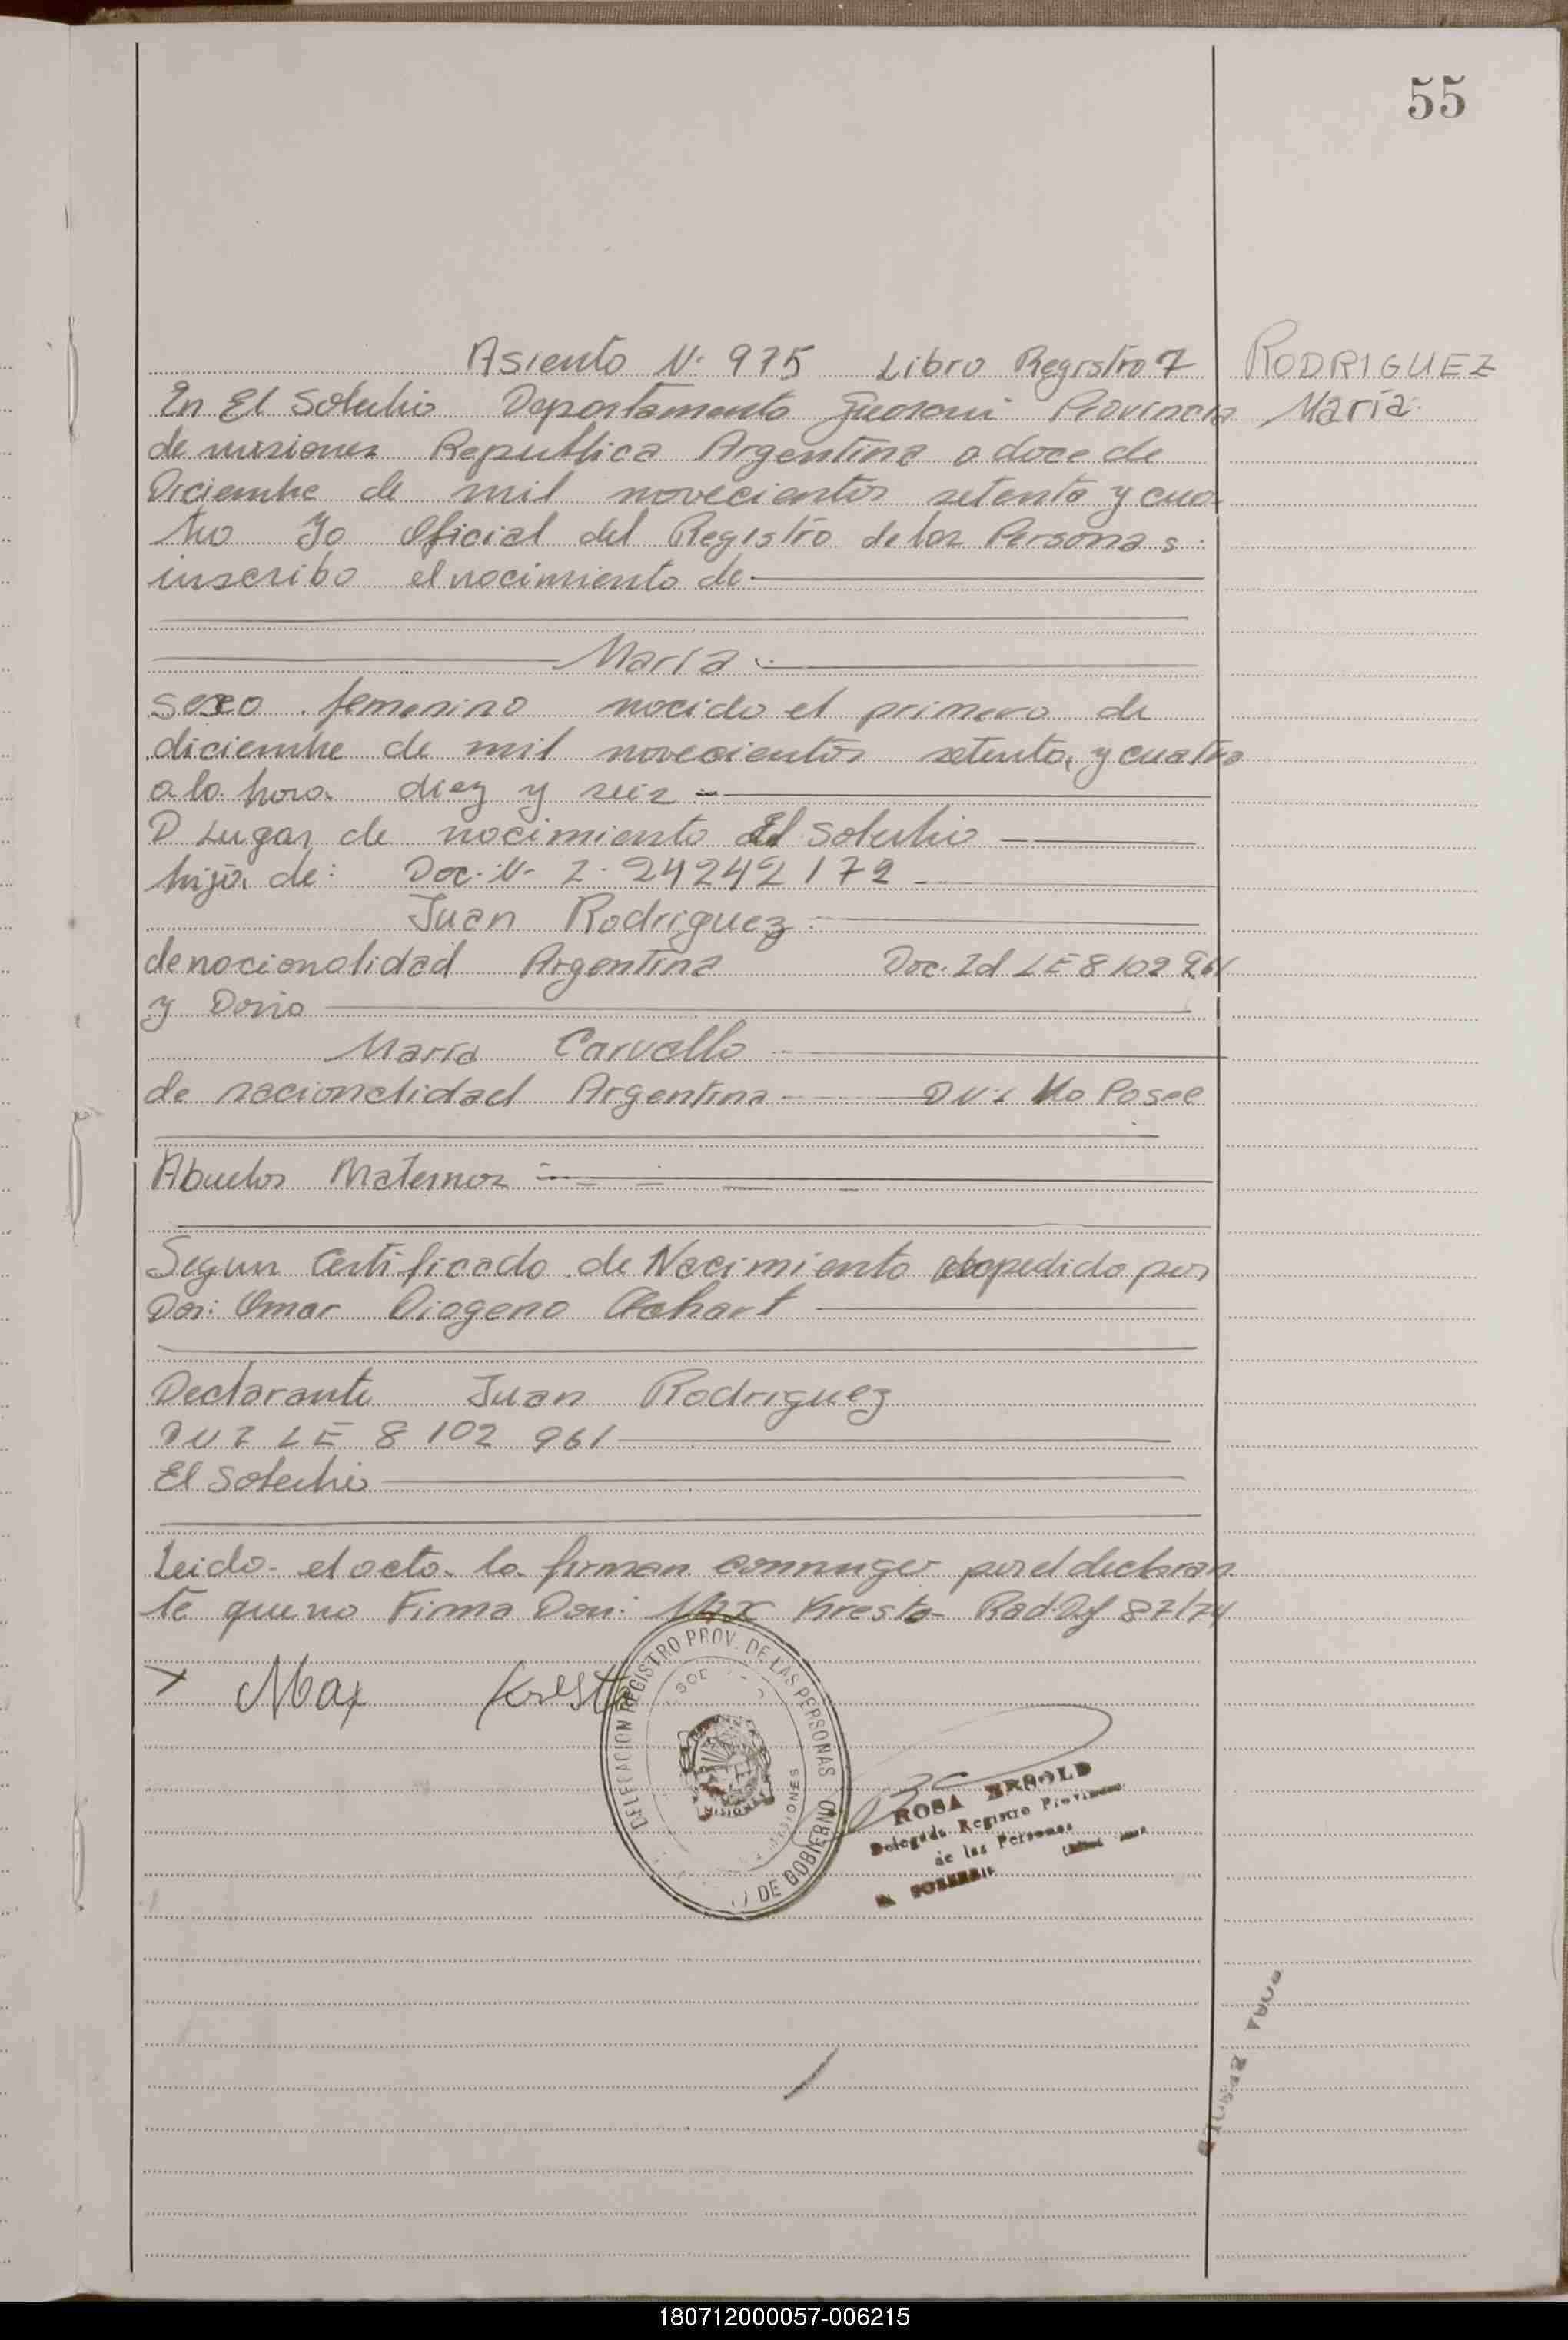 55
Asiento N. 975 Libro Registro 7
RODRIGUEZ
María
En El Soberbio Departamento Guarani Provincia
de misiones Republica Argentina a doce de
Diciembre de mil novecientos setenta y cua
tro Yo Oficial del Registro de las Personas
inscribo el nacimiento de
María
sexo femenino nacido el primero de
diciembre de mil novecientos setenta y cuatro
a la hora diez y seis
D Lugar de nacimiento El Soberbio
hija de: Doc. N. I. 24242172
Juan Rodriguez
de nacionalidad Argentina Doc. Id LE 8102961
y Doña
María Carvallo
de nacionalidad Argentina No Posee
Abuelos Maternos
Segun Certificado de Nacimiento expedido por
Don: Omar Diogeno
Declarante Juan Rodriguez
LE 8 102 961
El Soberbio
Leido el acto lo firman conmigo por el declaran
te que no Firma Don: Max Kresta 87/74
X Max Kresta
DELEGACION REGISTRO PROV. DE LAS PERSONAS
DE GOBIERNO
MISIONES
ROSA ERSOLD
Delegada Registro Provincial
de las Personas
180712000057-006215